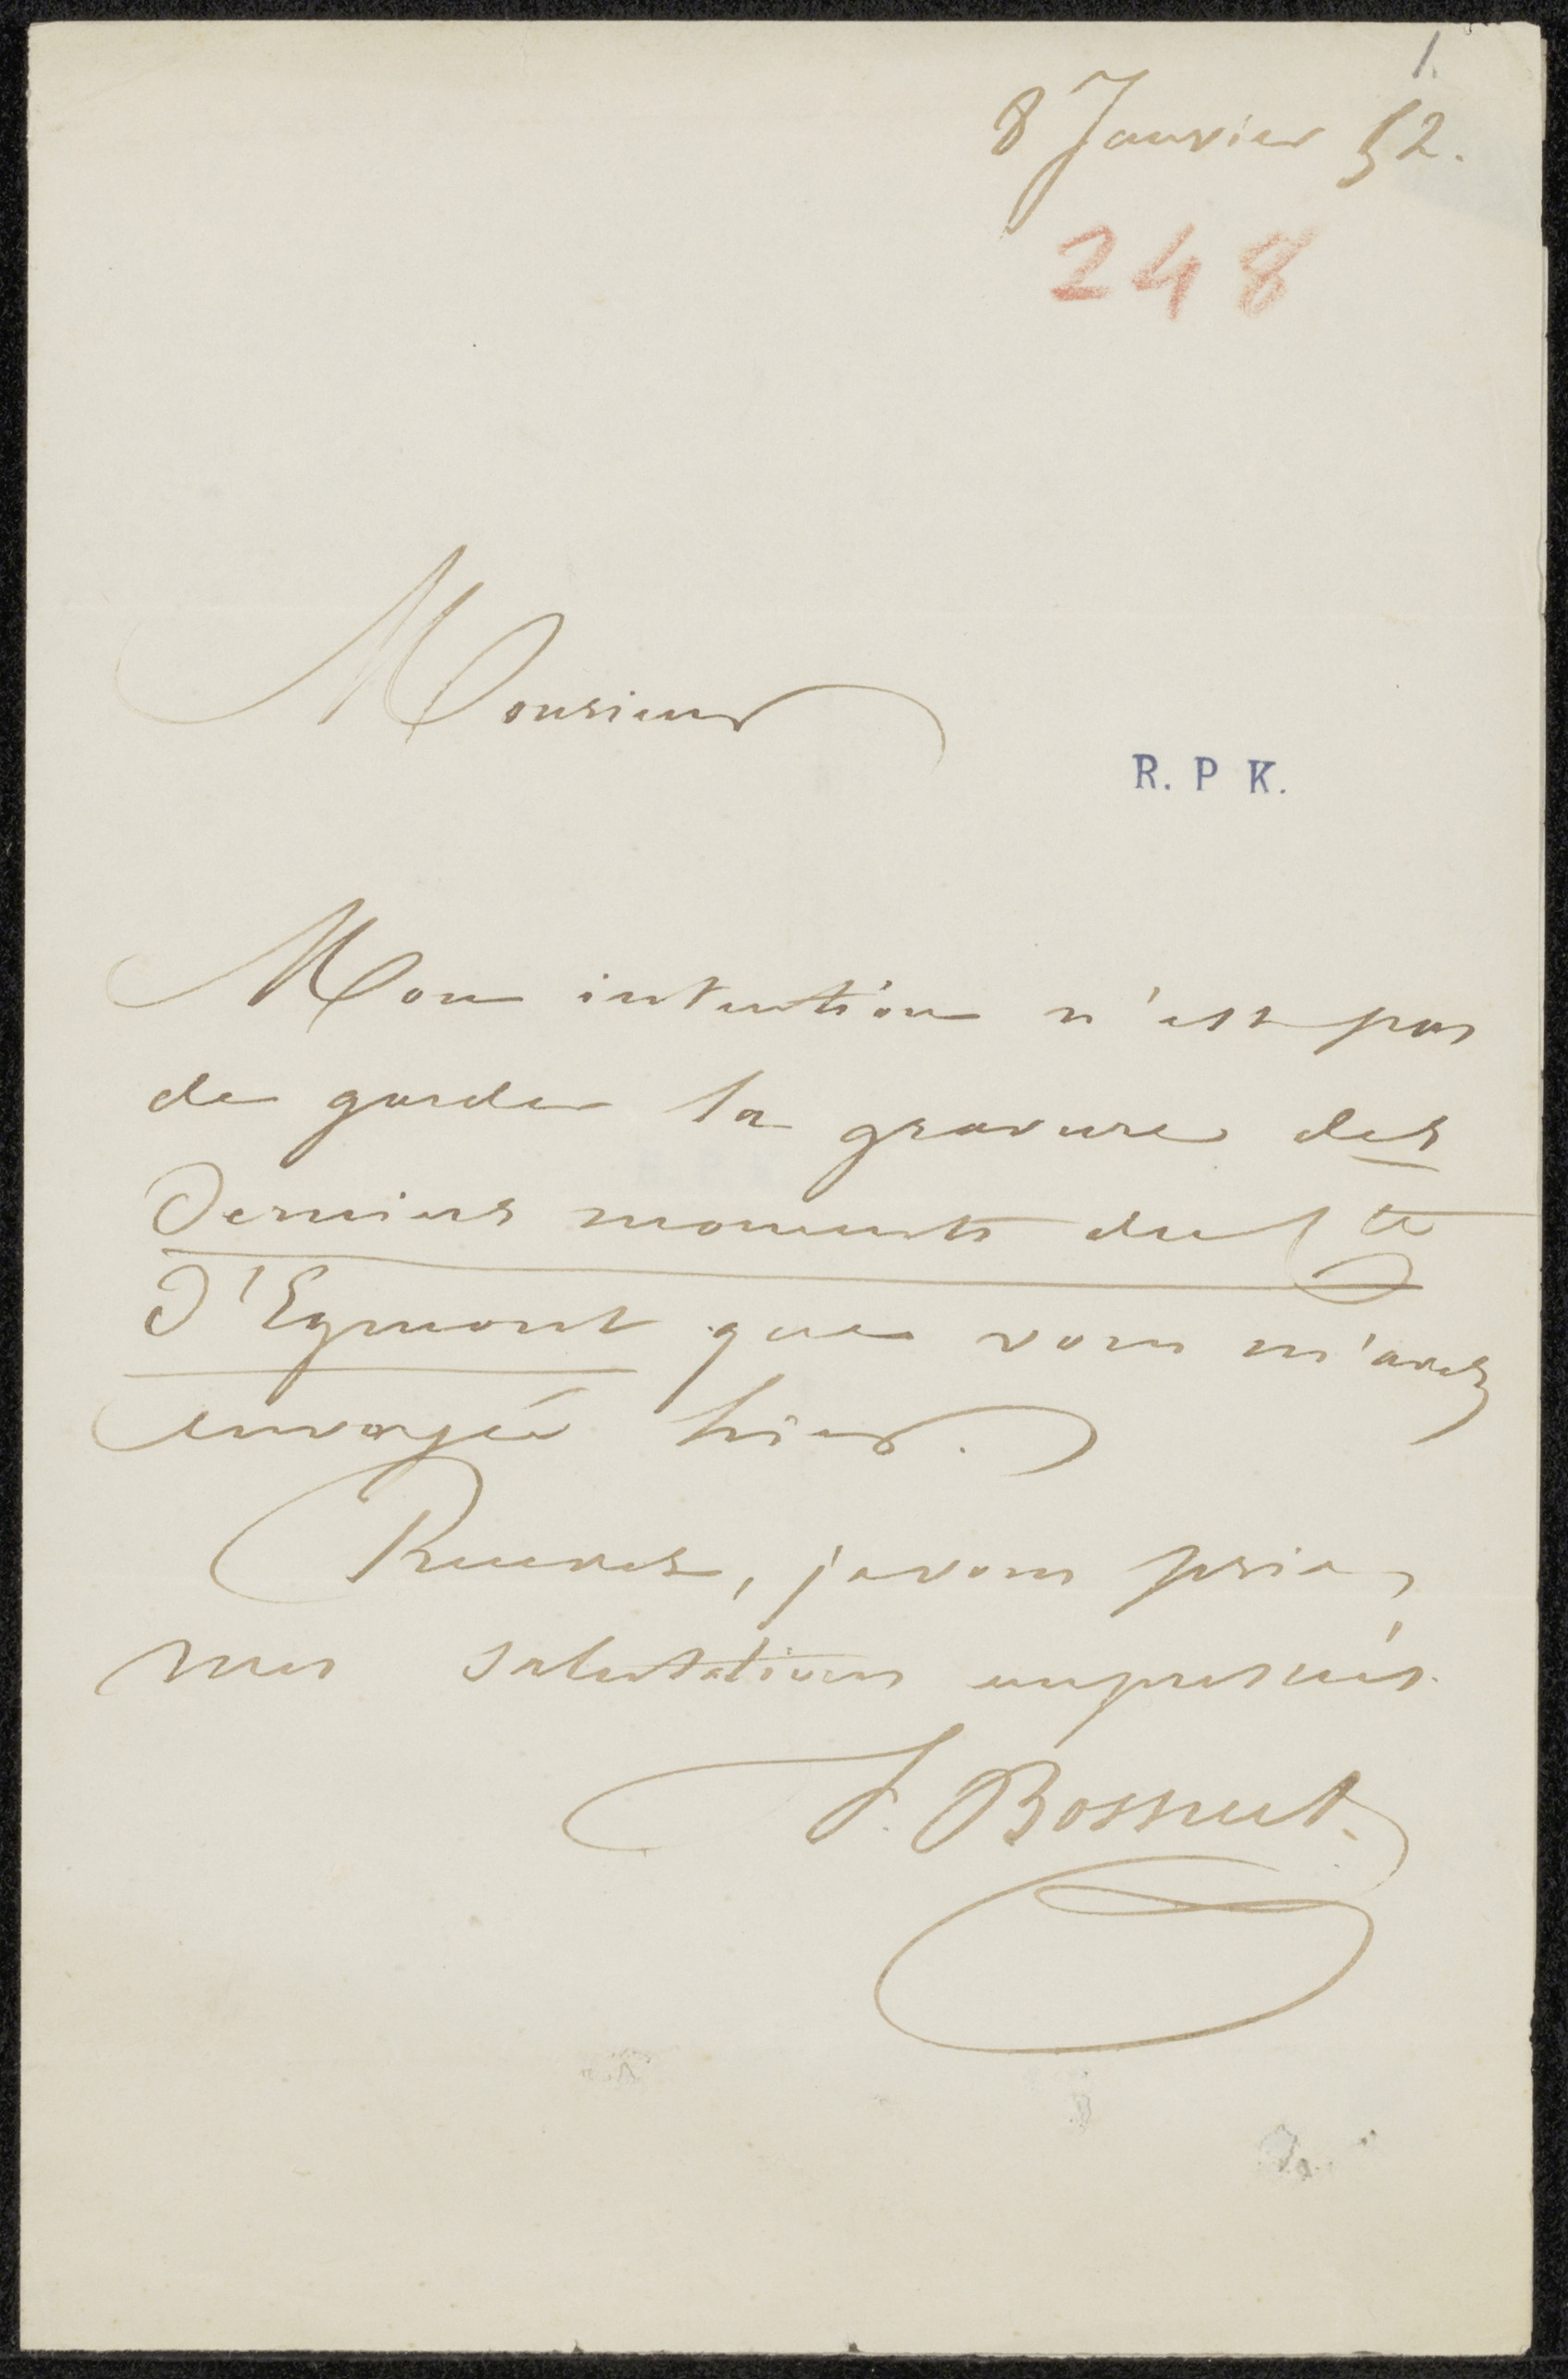 1.
8 Janvier 52.
248
Monsieur
R. P K.
Mon intention n'est pas
de garder la gravure des
Derniers moments du Cte
D'Egmont que vous m'avez
envoyée hier.
Recevez, je vous prie,
mes salutations empressées.
Bossuet.